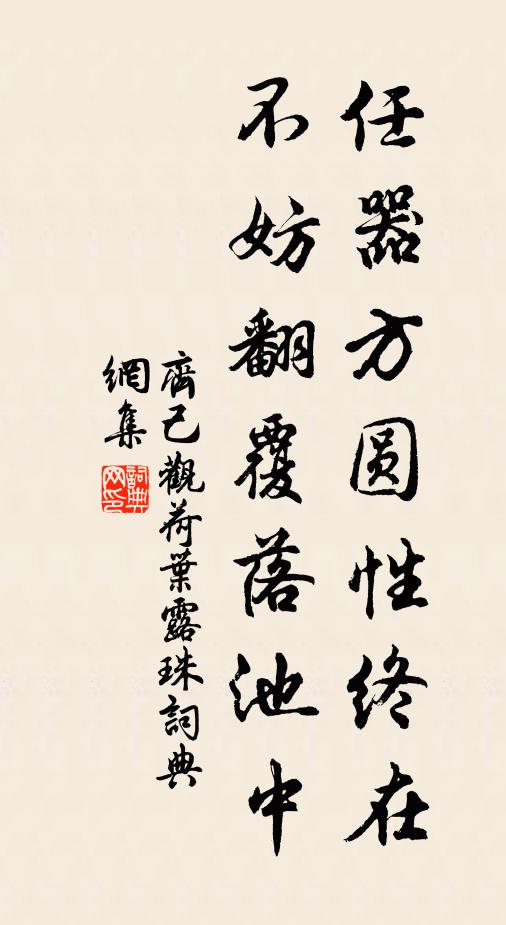 任器方圆性终在
不妨翻覆落池中
齊己觀荷葉露珠詞典
網集
詞典網印